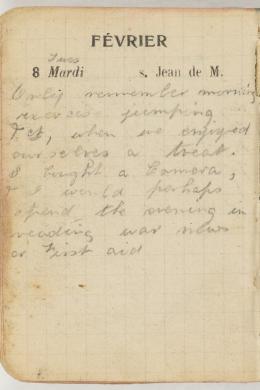 FÉVRIER
Tues
8 Mardi s. Jean de M.
Only remember morning
exercise jumping
&ct, when we enjoyed
ourselves a treat.
I bought a Camera,
& I would perhaps
spend the evening in
reading war views
or First aid